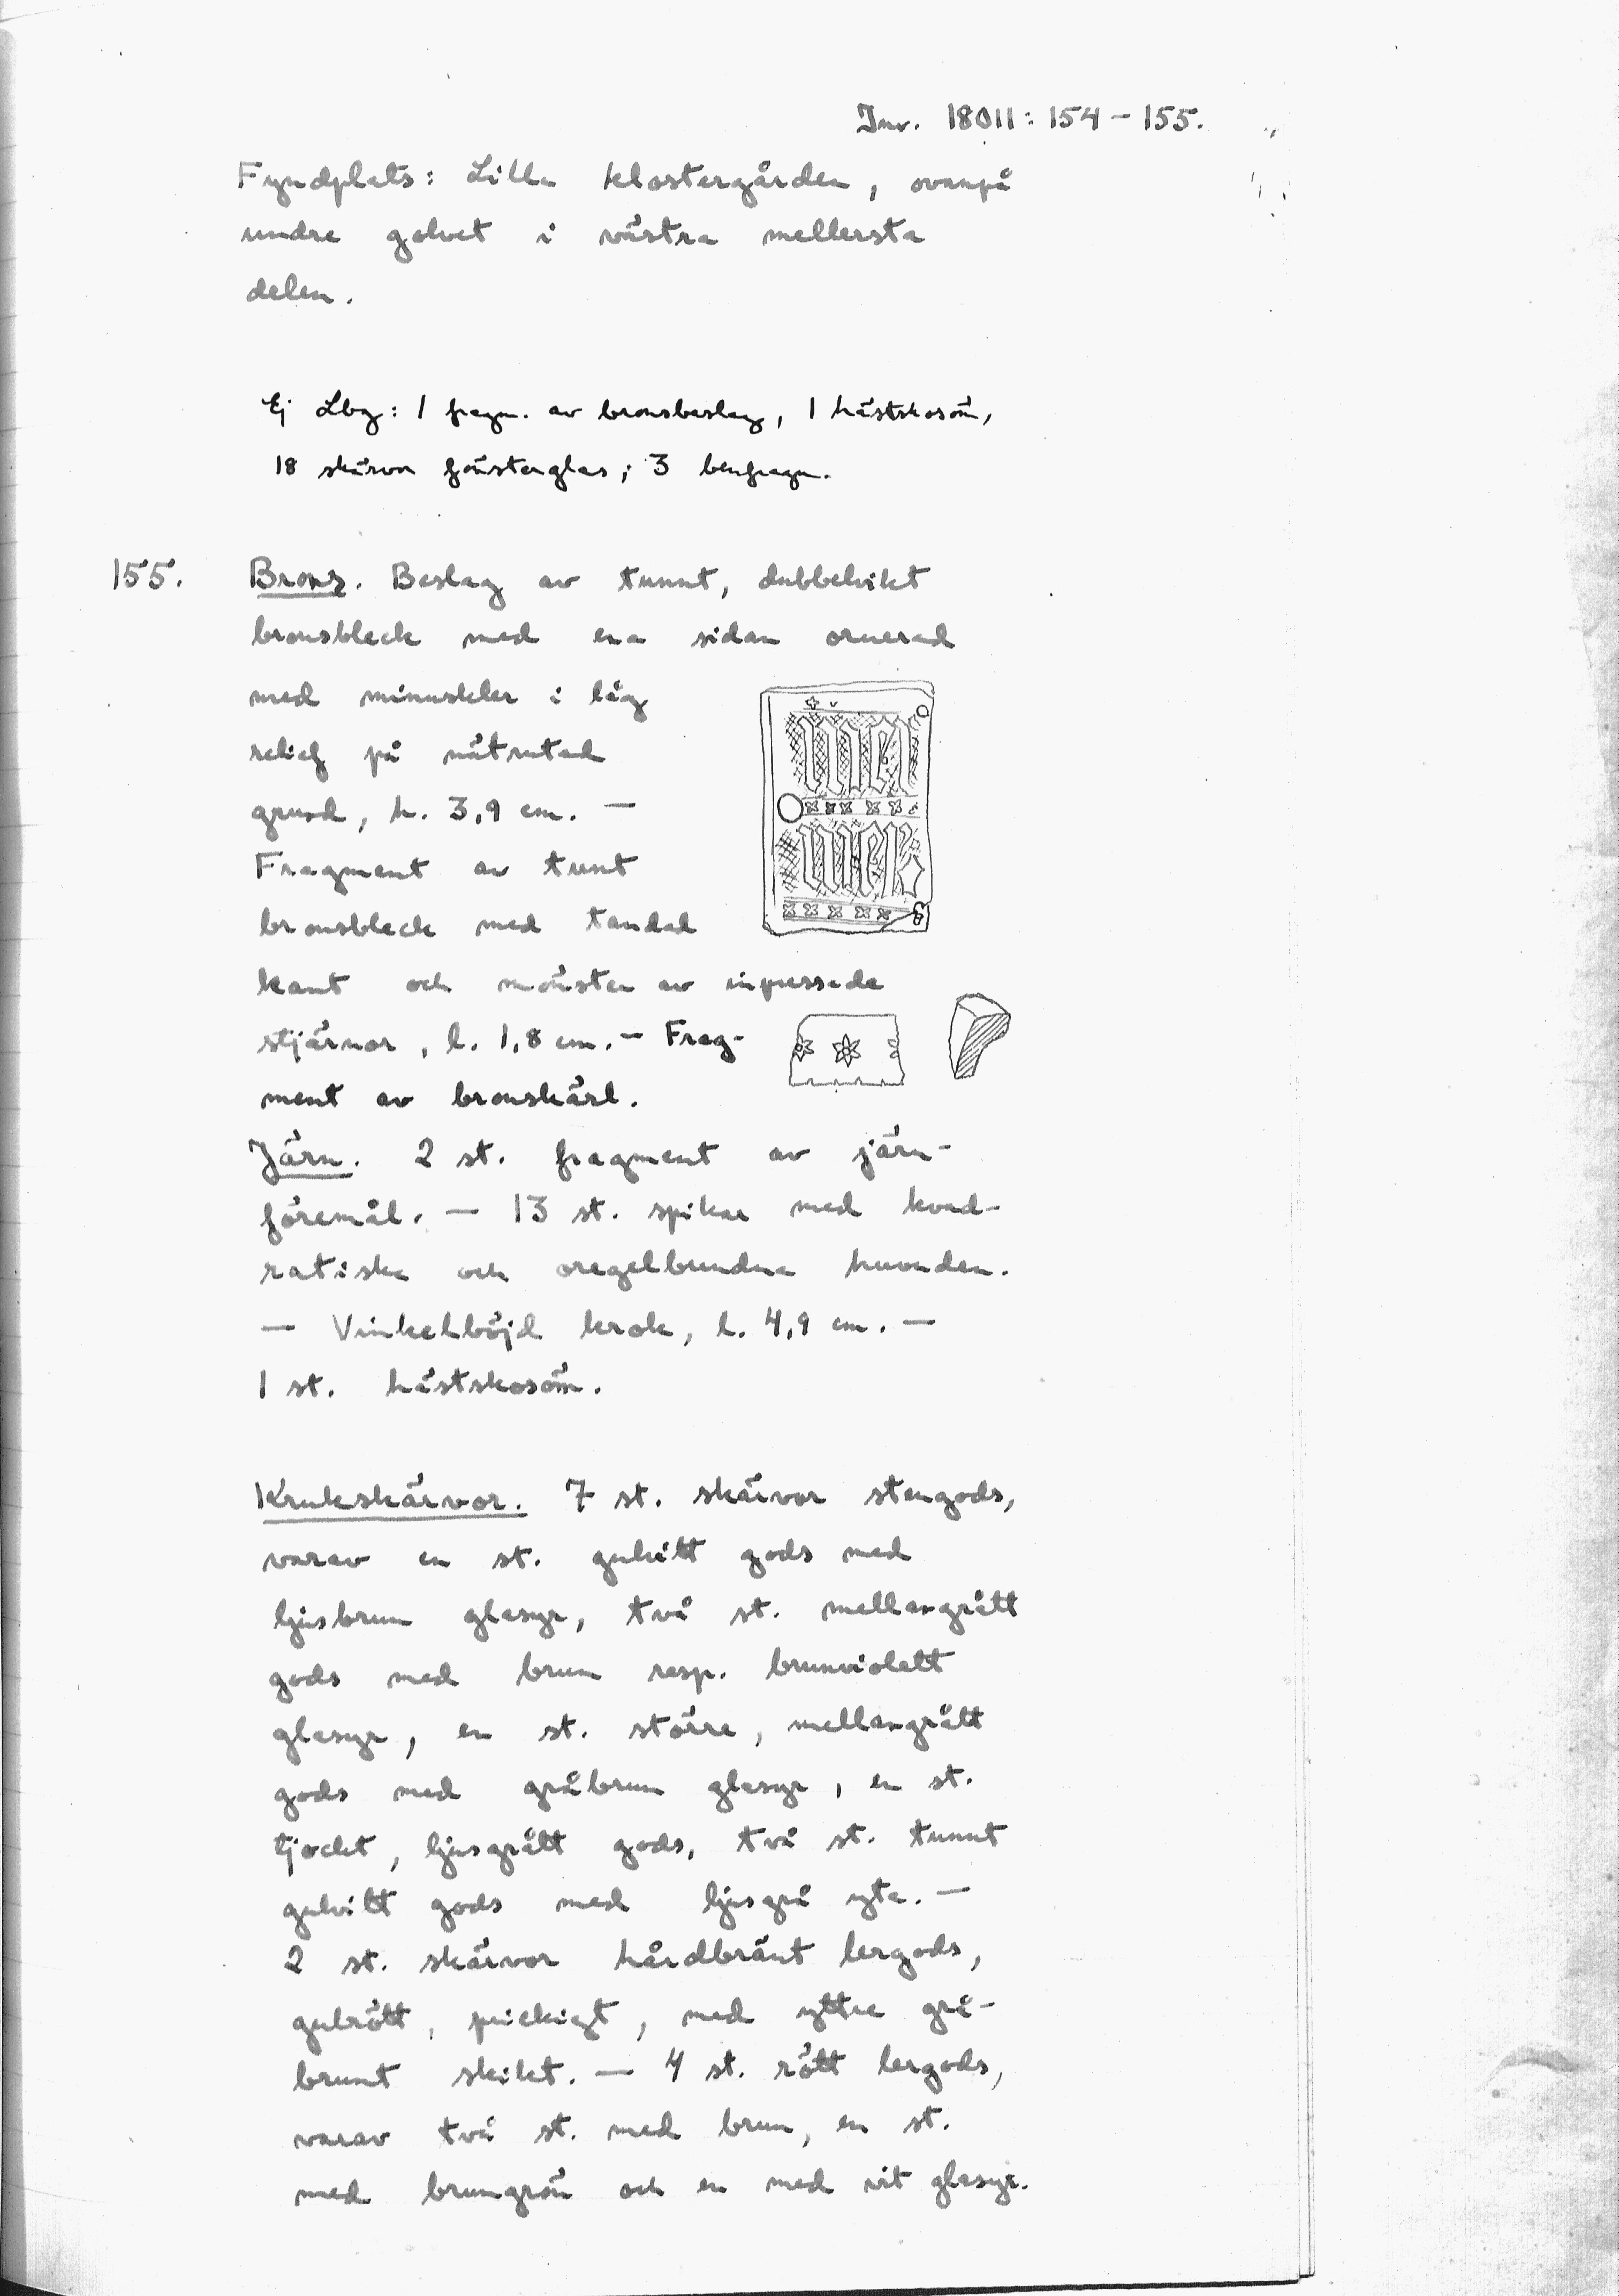 Inv. 18011: 154 – 155.
Fyndplats: Lilla klostergården, ovanpå
undre golvet i västra mellersta
delen.
Ej Lbg: 1 fragn. av bronsbeslag, 1 hästskosöm,
18 skärvor fönsterglas; 3 benfragn.
155. Brons. Beslag av tunnt, dubbelvikt
bronsbleck med ena sidan ornerad
med minuskler i låg
relief på nätrutad
grund, h. 3,9 cm. —
Fragment av tunt
bronsbleck med tandad
kant och mönster av inpressade
stjärnor, l. 1,8 cm. — Frag-
ment av bronskärl.
Järn. 2 st. fragment av järn-
föremål. — 13 st. spikar med kvad-
ratiska och oregelbundna huvuden.
— Vinkelböjd krok, l. 4,9 cm. —
1 st. hästskosöm.
Krukskärvor. 7 st. skärvor stengods,
varav en st. gulvitt gods med
ljusbrun glasyr, två st. mellangrått
gods med brun resp. brunviolett
glasyr, en st. större, mellangrått
gods med gråbrun glasyr, en st.
tjockt, ljusgrått gods, två st. tunnt
gulvitt gods med ljusgrå yta. —
2 st. skärvor hårdbränt lergods,
gulrött, prickigt, med yttre grå-
brunt skikt. — 4 st. rött lergods,
varav två st. med brun, en st.
med brungrön och en med vit glasyr.